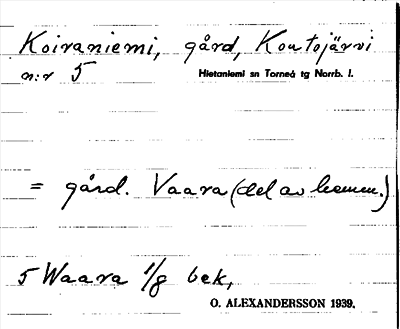 Koivaniemi, gård, Koutojärvi
n:r 5 Hietaniemi sn Torneå tg Norrb. l.
= gård. Vaara (del av hemm.)
5 Waara 1/8 bek,
O. ALEXANDERSSON 1939.